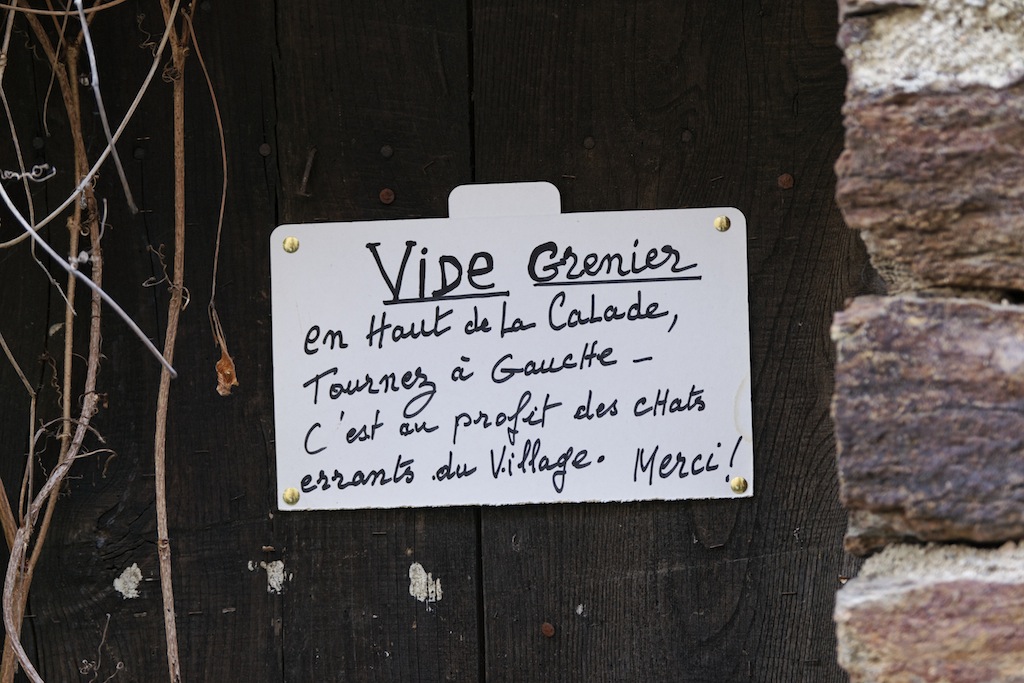 Vide Grenier
en Haut de La Calade,
Tournez à Gauche –
C'est au profit des cHats
errants du Village. Merci!